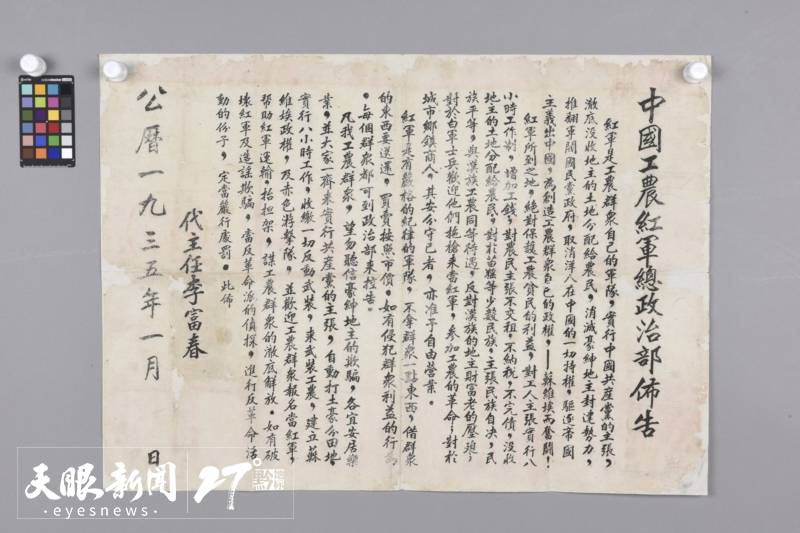 中國工農紅軍總政治部佈告
紅軍是工農群衆自己的軍隊，實行中國共産黨的主張，
澈底没收地主的土地分配給農民，消滅豪紳地主封建勢力，
推翻軍閥國民黨政府，取消洋人在中國的一切特權，驅逐帝國
主義出中國，爲創造工農群衆自己的政權，——蘇維埃而奮鬭！
紅軍所到之地，絕對保護工農貧民的利益，對工人主張實行八
小時工作制，增加工錢，對農民主張不交租，不納稅，不完債，没收
地主的土地分配給農民，對於苗猺等少數民族，主張民族自决，民
族平等，與漢族工農同等待遇，反對漢族的地主財富老的壓廹；
對於白軍士兵歡迎他們拖槍來當紅軍，參加工農的革命；對於
城市鄉鎮商人，其安分守己者，亦准予自由營業。
紅軍是有嚴格的紀律的軍隊，不拿群衆一點東西，借群衆
的東西要送還，買賣按照市價，如有侵犯群衆利益的行爲
，每個群衆都可到政治部來控告。
凡我工農群衆，望勿聽信豪紳地主的欺騙，各宜安居樂
業，並大家一齊來實行共産黨的主張，自動打土豪分田地，
實行八小時工作，收繳一切反動武裝，來武裝工農，建立蘇
維埃政權，及赤色游擊隊，並歡迎工農群衆報名當紅軍，
帮助紅軍運輸，抬担架，謀工農群衆的澈底解放。如有破
壞紅軍及造謡欺騙，當反革命派的偵探，進行反革命活
動的份子，定當嚴行處罰。此佈
代主任李富春
公曆一九三五年一月 日
天眼新聞 27°黔深
eyesnews